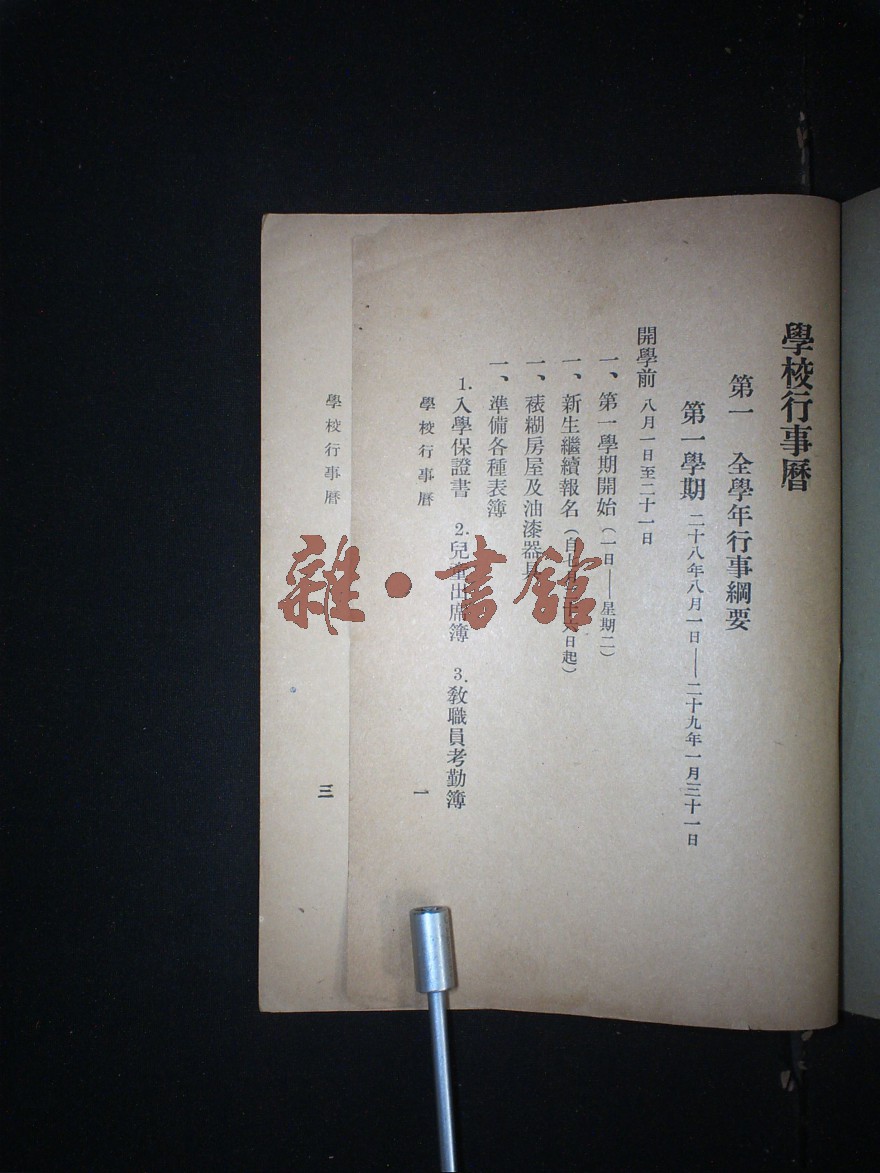 學校行事曆
第一 全學年行事綱要
第一學期 二十八年八月一日——二十九年一月三十一日
開學前 八月一日至二十一日
一、第一學期開始（一日——星期二）
一、新生繼續報名（自七月十六日起）
一、裱糊房屋及油漆器具
一、準備各種表簿
1.入學保證書 2.兒童出席簿 3.教職員考勤簿
學校行事曆
一
學校行事曆
三
雜·書館